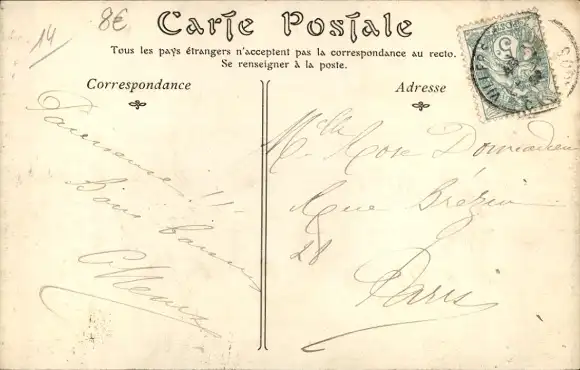 14
8€
Carte Postale
Tous les pays étrangers n'acceptent pas la correspondance au recto.
Se renseigner à la poste.
Correspondance
Adresse
Paresseuse !!
Bons baisers
Mlle Rose Domadieu
Rue Brézin
28
Paris